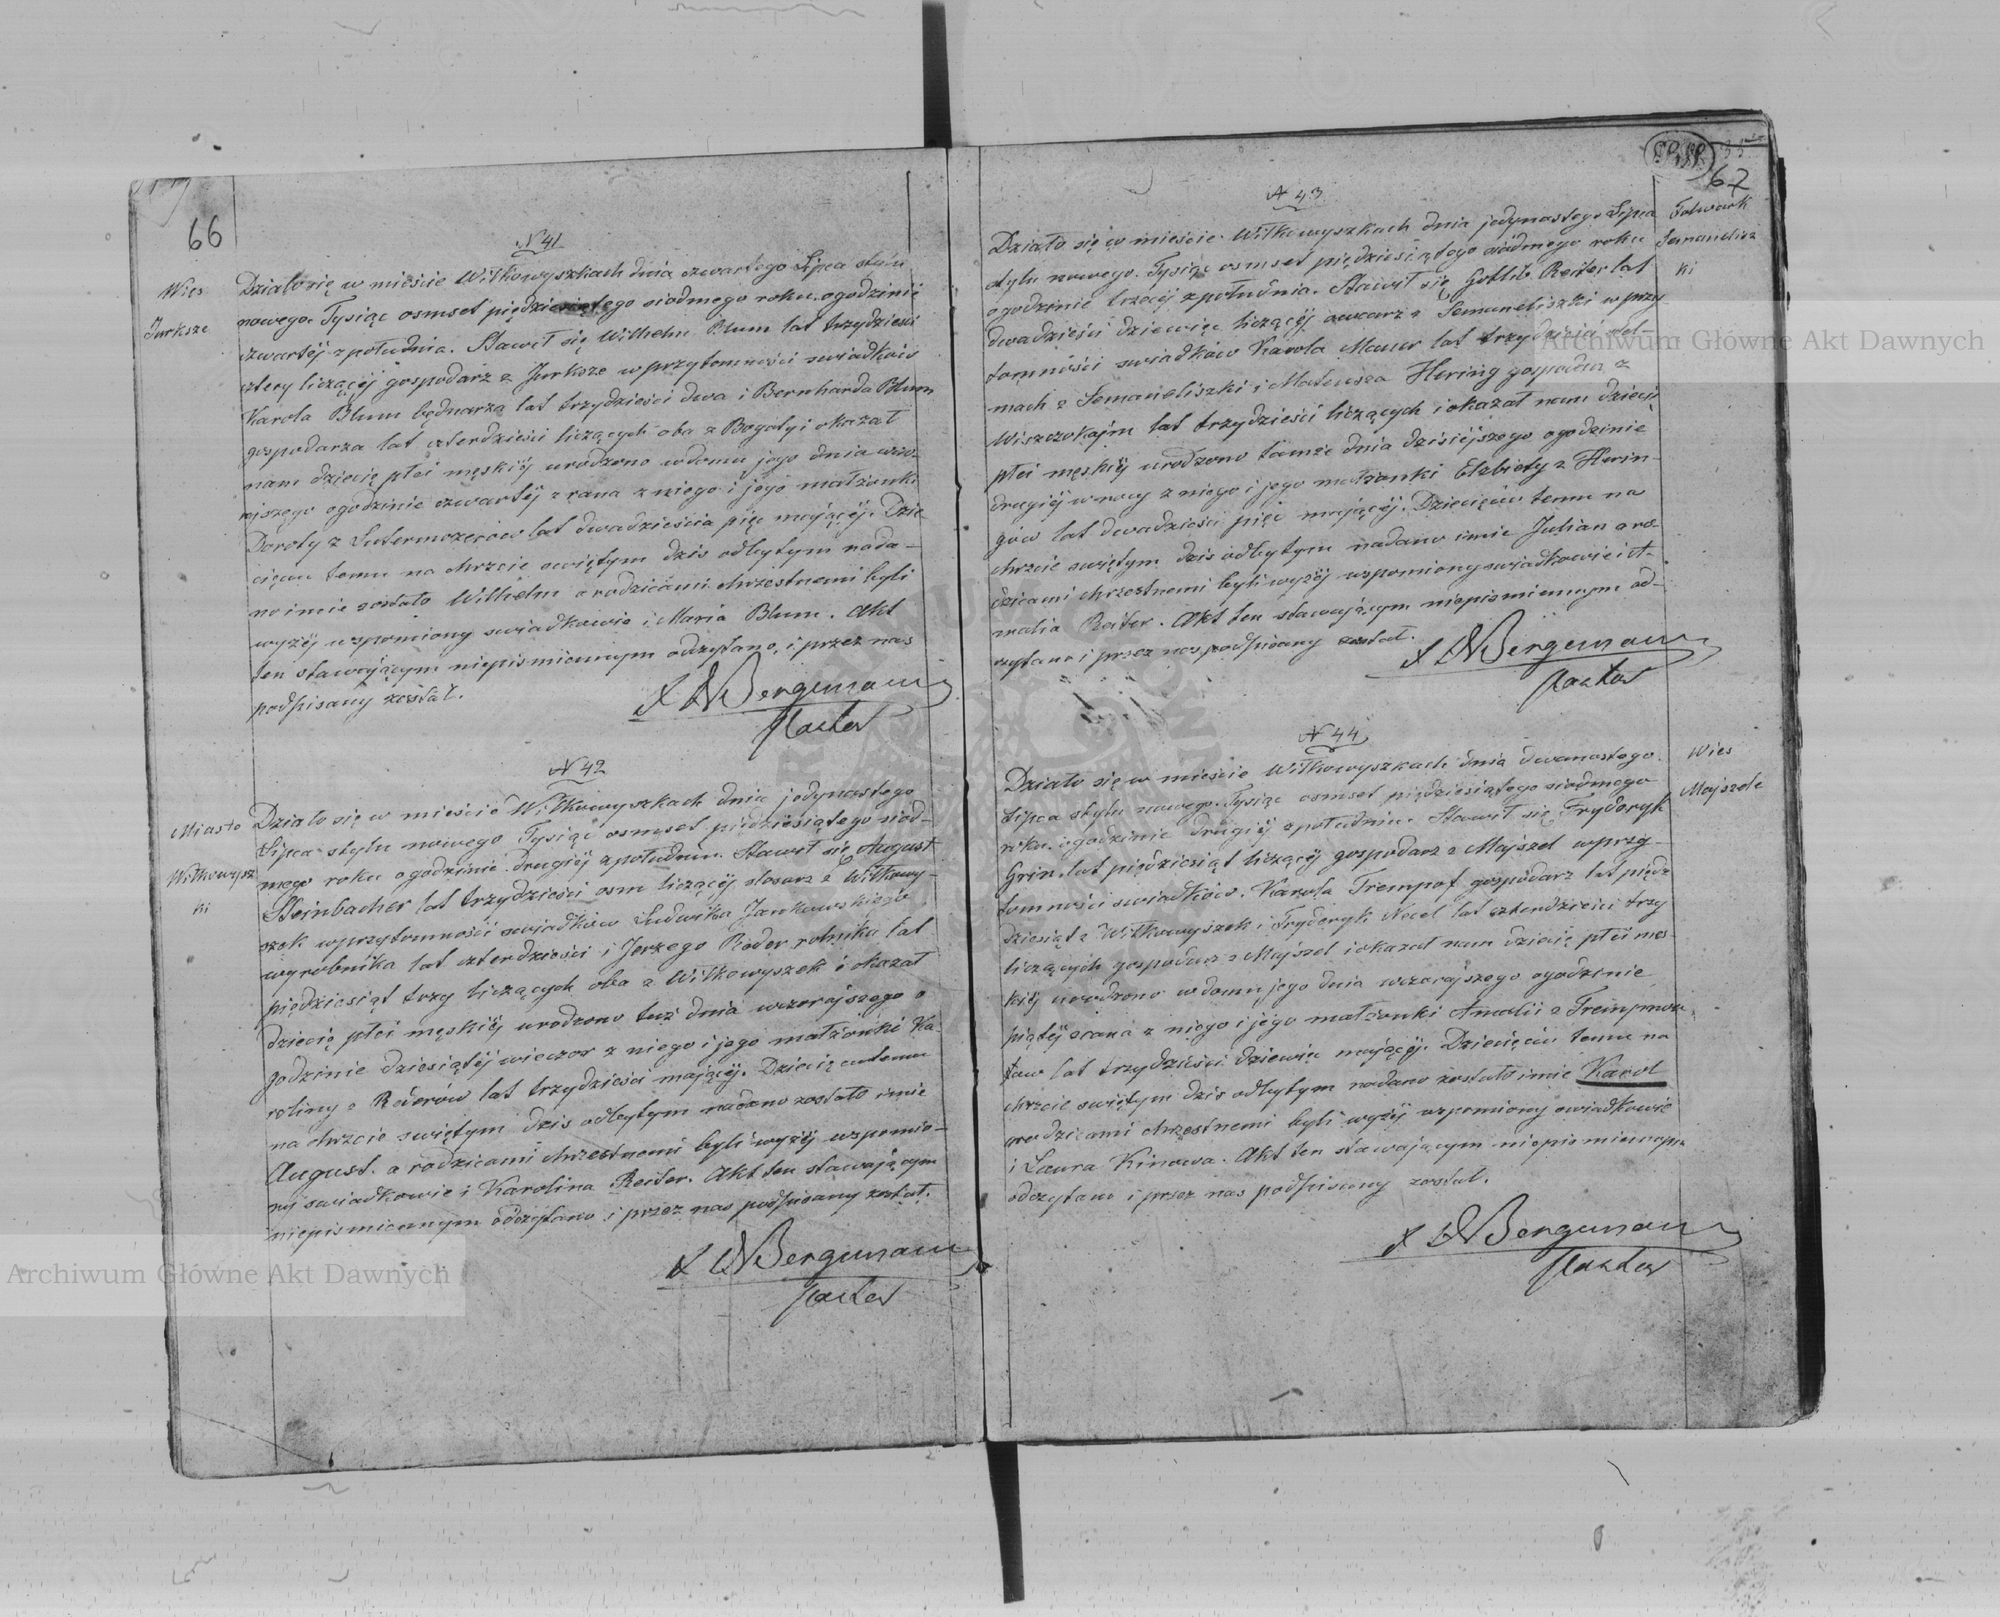 66
N 41
Wieś
Jurksze
Działo się w mieście Wiłkowyszkach dnia czwartego Lipca stylu
nowego. Tysiąc osmset pięćdziesiątego siódmego roku. o godzinie
czwartéj z południa. Stawił się Wilhelm Blum lat trzydzieści
cztery liczącéj gospodarz z Jurksze w przytomności swiadków
Karola Blum będnarza lat trzydzieści dwa i Bernharda Blum
gospodarza lat czterdzieści liczących oba z Bogaty i okazał
nam dziecię płci męskiéj urodzone w domu jego dnia wczo-
rajszego o godzinie czwartéj z rana z niego i jego małżonki
Doroty z lat dwadzieścia pięć mającéj. Dzie-
cięciu temu na chrzcie swiętym dziś odbytym nada-
no imie zostało Wilhelm a rodzicami chrzestnemi byli
wyżéj wspomiony swiadkowie i Maria Blum. Akt
ten stawającym niepismiennym odczytano, i przez nas
podpisany został.
Bergemann
Pastor
N 42
Miasto
Wiłkowysz
ki
Działo się w mieście Wiłkowyszkach dnia jedynastego
Lipca stylu nowego Tysiąc osmset pięćdziesiątego siód-
mego roku o godzinie drugiéj z południa. Stawił się August
Steinbacher lat trzydzieści osm liczącéj slosarz z Wiłkowy-
szek w przytomności swiadków Ludwika Jankowskiego
wyrobnika lat czterdzieści i Jerzego Röder rolnika lat
pięćdziesiąt trzy liczących oba z Wiłkowyszek i okazał
dziecię płci męskiéj urodzone tuż dnia wczorajszego o
godzinie dziesiątéj wieczor z niego i jego małżonki Ka-
roliny z Röderów lat trzydzieści mającéj. Dziecięciu temu
na chrzcie swiętym dziś odbytym nadano zostało imie
August. a rodzicami chrzestnemi byli wyżéj wspomio-
ny swiadkowie i Karolina Reiter. Akt ten stawającym
niepismiennym odczytano i przez nas podpisany został.
Bergemann
Pastor
67
N 43
Folwark
Semanelisz
ki
Działo się w mieście Wiłkowyszkach dnia jedynastego Lipca
stylu nowego. Tysiąc osmset pięćdziesiątego siódmego roku
o godzinie trzeciéj z południa. Stawił się Gottlib Reiter lat
dwadzieści dziewięć liczącéj owczarz z Semaneliszki w przy
tomności swiadków Karola Maur lat trzydzieści
mach z Semaneliszki i Mateusza Hering gospodarz z
Wiszczokajm lat trzydzieści liczących i okazał nam dziecię
płci męskiéj urodzone tamże dnia dzisiéjszego o godzinie
drugiéj w nocy z niego i jego małżonki Elżbiety z Herin-
gów lat dwadzieści pięć mającéj. Dziecięciu temu na
chrzcie swiętym dziś odbytym nadano imie Julian a ro-
dzicami chrzestnemi byli wyżéj wspomiony swiadkowie i A-
malia Reiter. Akt ten stawającym niepismiennym od-
czytano i przez nas podpisany został.
Bergemann
Pastor
N 44
Wieś
Majszele
Działo się w mieście Wiłkowyszkach dnia dwunastego
Lipca stylu nowego. Tysiąc osmset pięćdziesiątego siódmego
roku. o godzinie drugiéj z południu. Stawił się Fryderyk
Grin. lat pięćdziesiąt liczącéj gospodarz z Majszel w przy-
tomności swiadków. Karola Trempof gospodarz lat pięć-
dziesiąt z Wiłkowyszek i Fryderyk Necel lat czterdzieści trzy
liczących gospodarz z Majszel i okazał nam dziecię płci męs-
kiéj urodzono w domu jego dnia wczorajszego o godzinie
piątéj z rana z niego i jego małżonki Amalii z
lat trzydzieści dziewięć mającéj. Dziecięciu temu na
chrzcie swiętym dziś odbytym nadano zostało imie Karol
a rodzicami chrzestnemi byli wyżéj wspomiony swiadkowie
i Laura Kinowa. Akt ten stawającym niepismiennym
odczytano i przez nas podpisany został.
Bergemann
Pastor
Archiwum Główne Akt Dawnych
Archiwum Główne Akt Dawnych